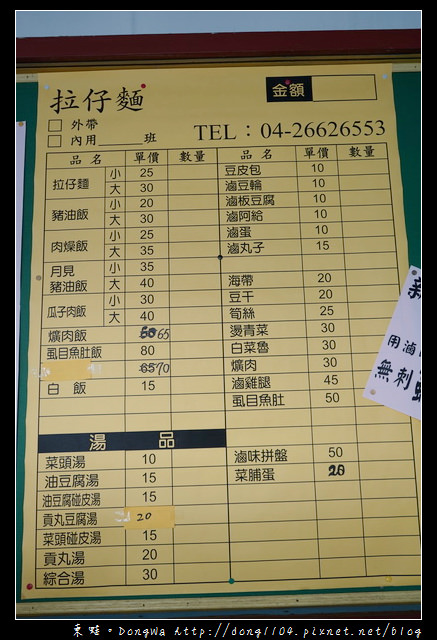 拉仔麵
金額
外帶
內用 班
TEL：04-26626553
品名 單價 數量 品名 單價 數量
拉仔麵 小 25
大 30
豬油飯 小 20
大 30
肉燥飯 小 25
大 35
月見豬油飯 小 35
大 40
瓜子肉飯 小 30
大 40
爌肉飯 65
虱目魚肚飯 80
小 6570
白飯 15
湯品
菜頭湯 10
油豆腐湯 15
油豆腐碰皮湯 15
貢丸豆腐湯 20
菜頭碰皮湯 15
貢丸湯 20
綜合湯 30
豆皮包 10
滷豆輪 10
滷板豆腐 10
滷阿給 10
滷蛋 10
滷丸子 15
海帶 20
豆干 20
筍絲 25
燙青菜 30
白菜魯 30
爌肉 30
滷雞腿 45
虱目魚肚 50
滷味拼盤 50
菜脯蛋 20
新
用滷
無刺
東蛙。DongWa http://dong1104.pixnet.net/blog